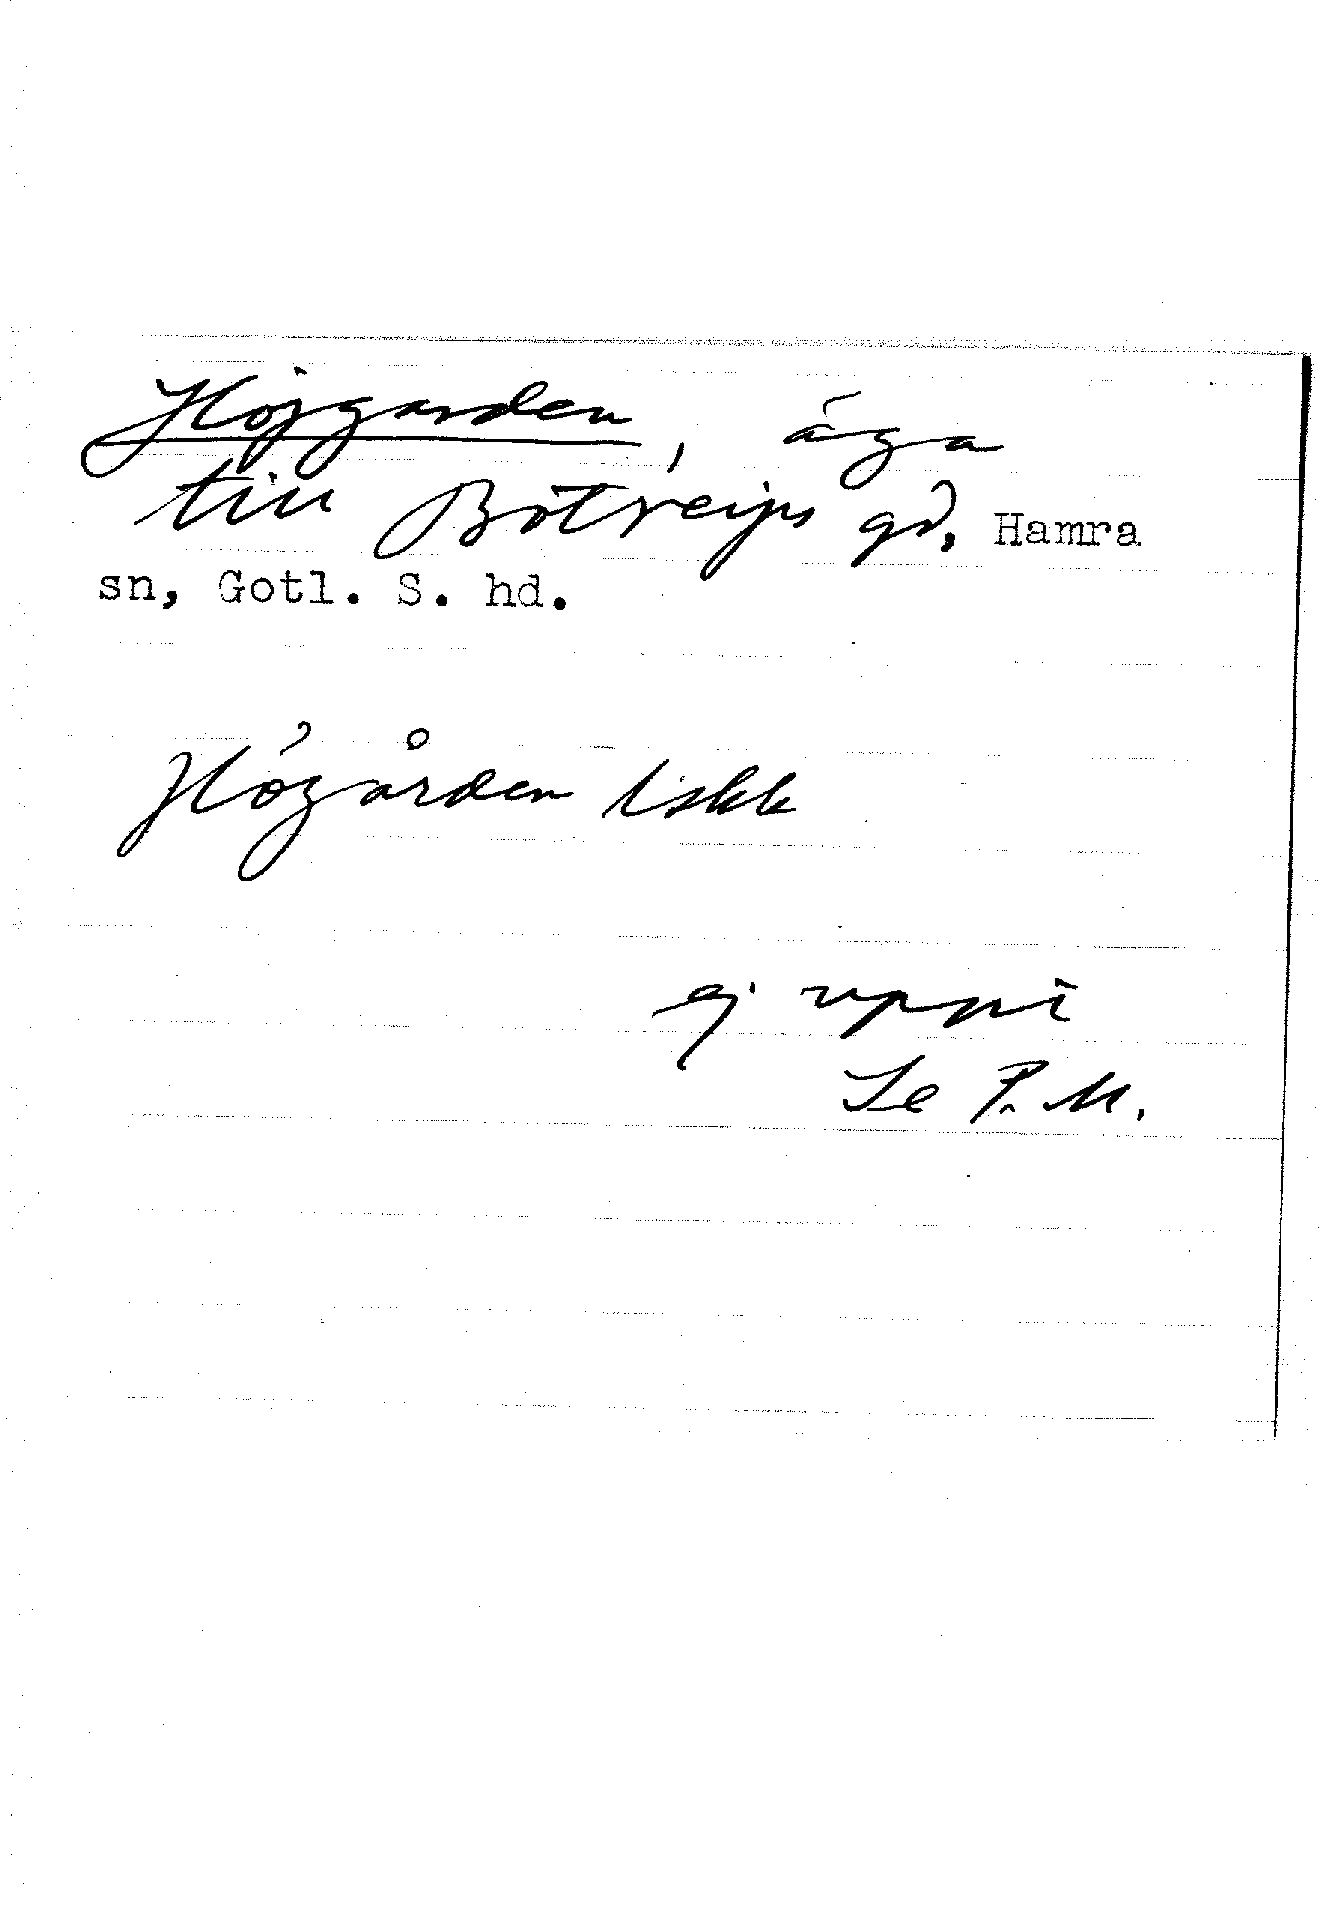 Höjgarden, äga
till Botreips gd, Hamra
sn, Gotl. S. hd.
Högården Lskk
ej uppt
Se P.M.